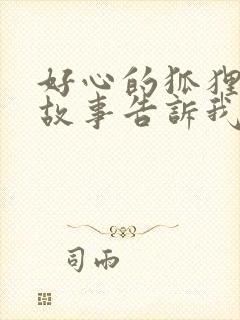 好心的狐狸
故事告訴我
司雨